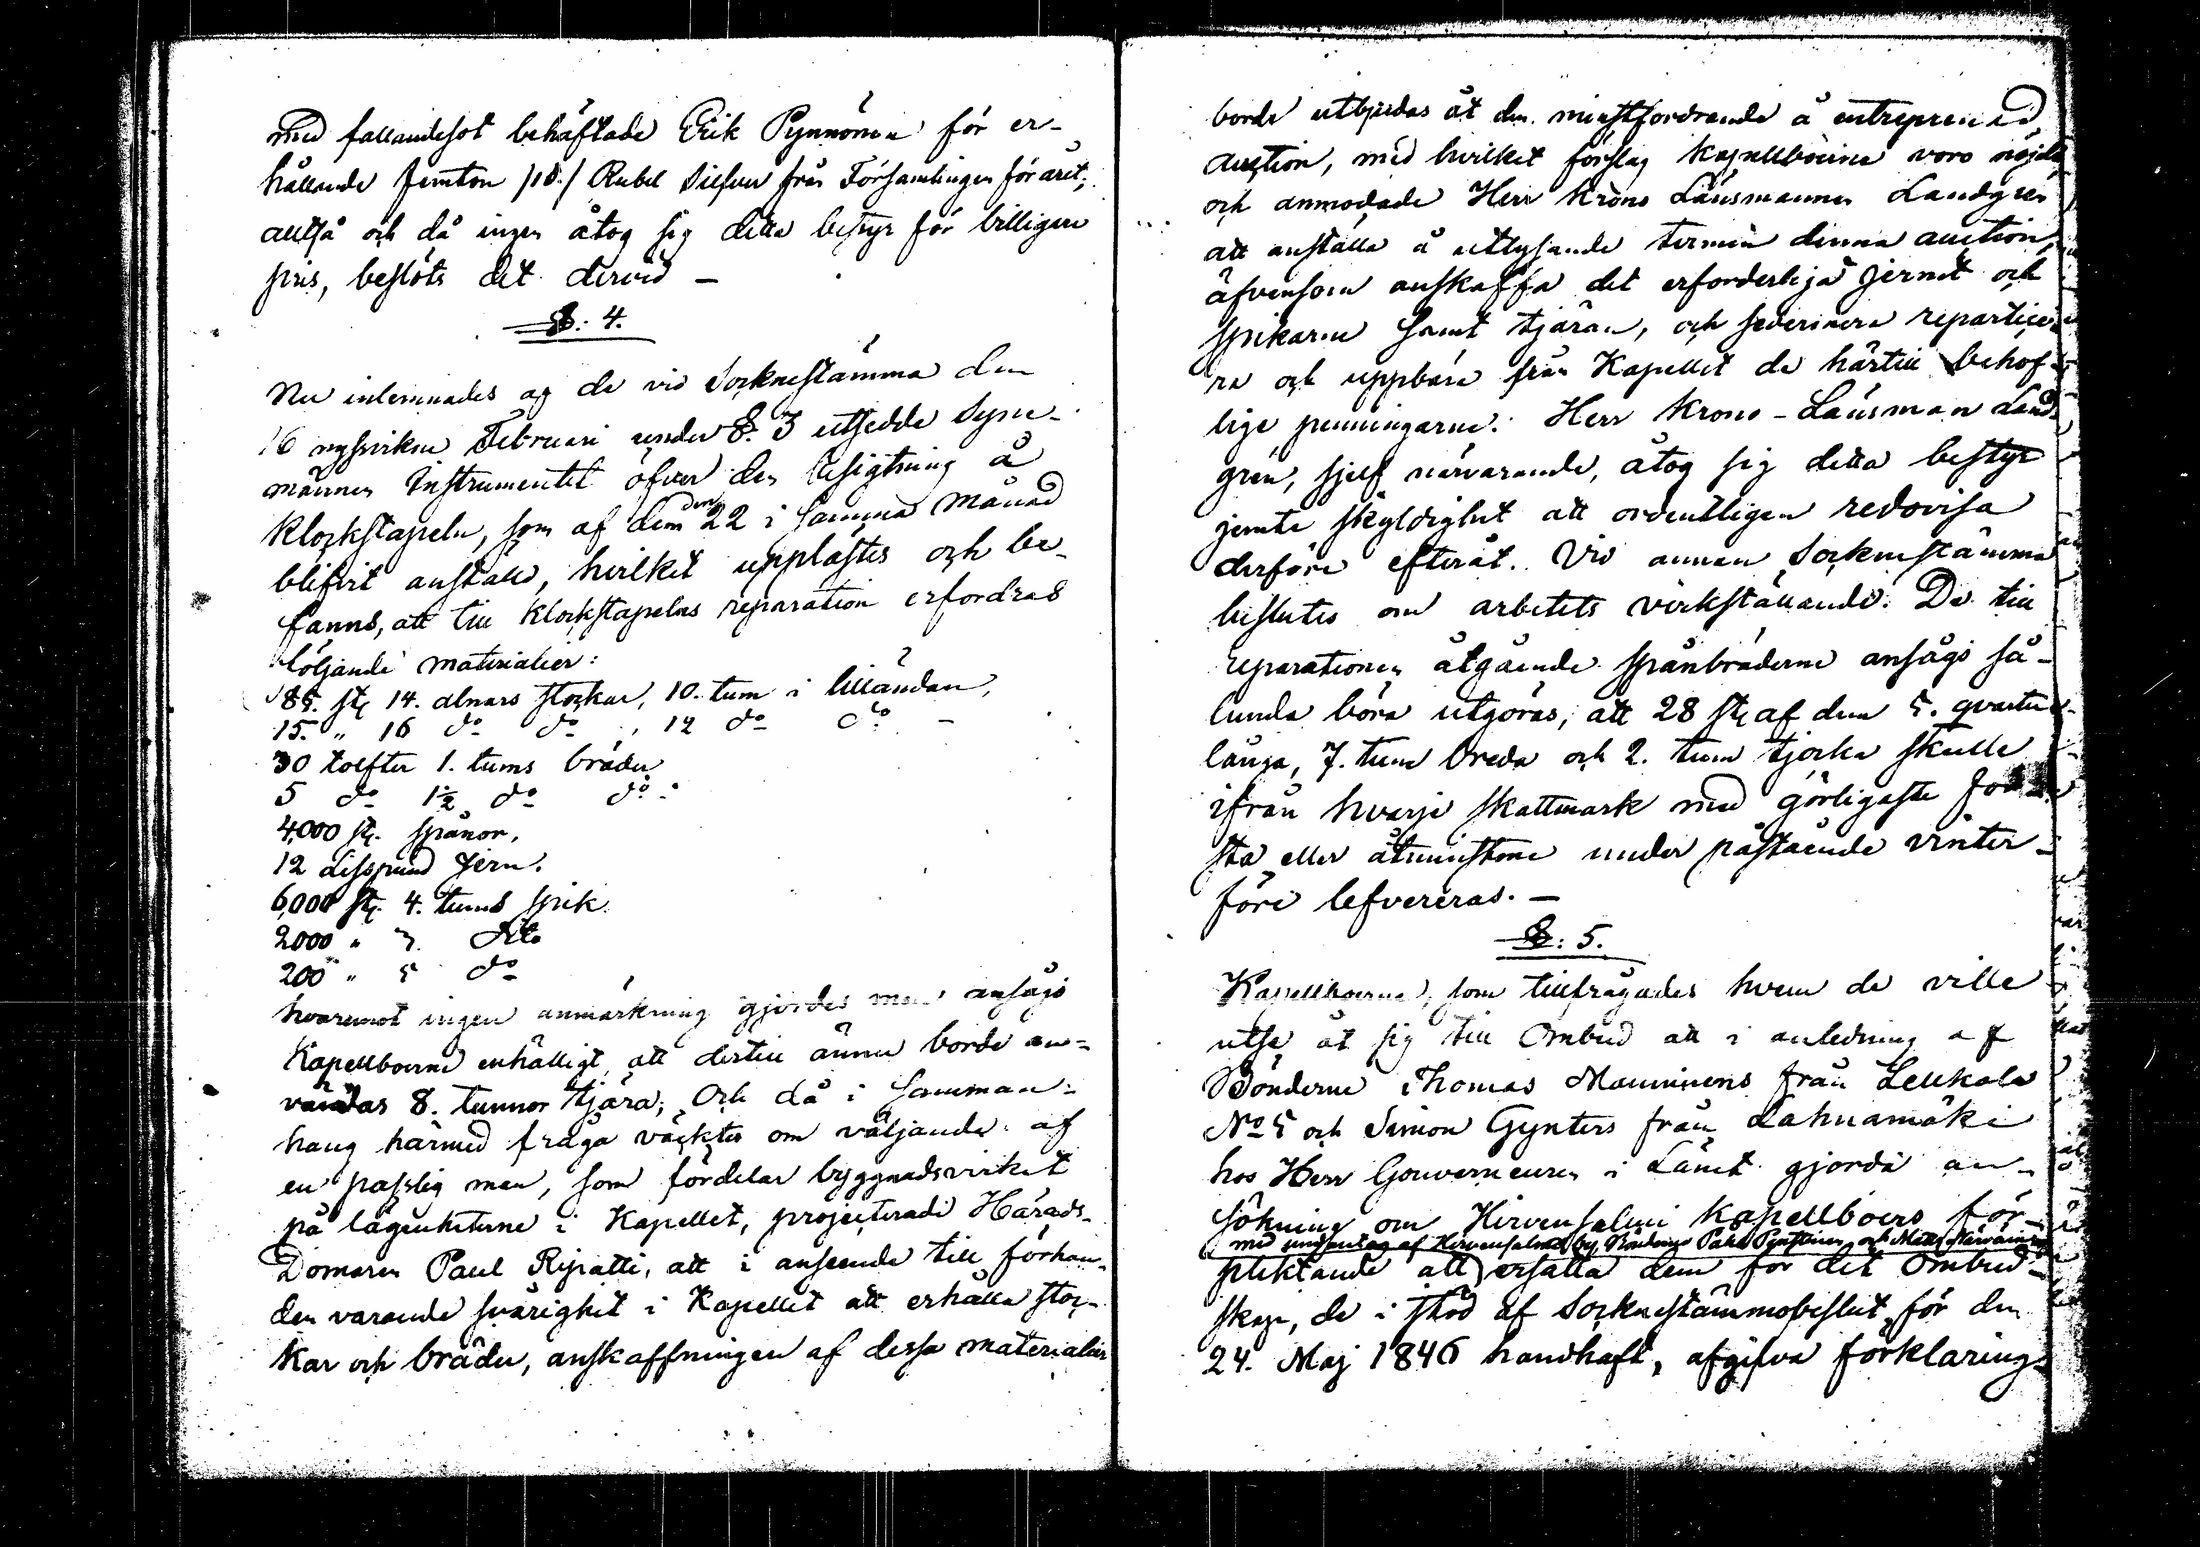 med fallandesot behäftade Erik Pynnönen för er-
hållande Femton /15/ Rubel Silfver från Församlingen för året;
alltså och då ingen åtog sig detta bestyr för billigare
pris, beslöts det dervid —
§: 4.
Nu inlemnades af de vid Sockne stämma den
16 nyssvikne Februari under §. 3 utsedde Syne-
männen Instrumentet öfver den besigtning å
Klockstapeln, som af dem den 22 i samma månad
blifvit anställd, hvilket upplästes och be-
fanns, att till klockstapelns reparation erfordras
följande materialier:
85. st. 14. alnars stockar, 10. tum i lilländan,
15. " 16 do do , 12 do do —
30 tolfter 1. tums bräder
5 do 1½ do do
4,000 st. spånor.
12 Lisspund Jern.
6,000 st. 4. tums spik
2000 " 3. Dito
200 " 5 do
hvaremot ingen anmärkning gjordes men ansågs
Kapellboerne enhälligt, att dertill ännu borde an-
vändas 8. tunnor tjära; Och då i samman-
hang härmed fråga väcktes om väljande af
en passlig man, som fördelar byggnadsvirket
på lägenheterne i Kapellet, projecterade Härads-
Domaren Paul Ripatti, att i anseende till förhan-
den varande svårighet i Kapellet att erhålla stoc-
kar och bräder, anskaffningen af dessa materialier
borde utbjudas åt den minstfordrande å entreprenad
auction, med hvilket förslag Kapellboerne voro nöjde
och anmodade Herr Krono Länsmannen Landgren
att anställa å utlysande termin denna auction,
äfvensom anskaffa det erforderliga Jernet och
spikarne samt tjäran, och sedermera repartice-
ra och uppbära från Kapellet de härtill behöf-
lige penningarne. Herr Krono-Länsman Land-
gren, sjelf närvarande, åtog sig detta bestyr
jemte skyldighet att ordentligen redovisa
derföre efteråt. Vid annan Sockne stämma
beslutes om arbetets verkställande. De till
reparationen åtgående spånbräderne ansågs så-
lunda böra utgöras, att 28 st. af dem 5. qvarter
långa, 7. tum breda och 2. tum tjocka skulle
ifrån hvarje skattmark med görligaste
sta eller åtminstone under påstående vinter-
före lefvereras. —
§: 5.
Kapellboerne, som tillfrågades hvem de ville
utse åt sig till Ombud att i anledning af
Bönderne Thomas Manninens från Leukola
No 5 och Simon Gynters från Lahnamäki
hos Herr Gouverneuren i Länet gjorda an-
sökning om Hirvensalmi Kapellboers för-
med undantag af Hirvensalmi by
pliktande att ersätta dem för det Ombud-
skap, de i stöd af Socknestämmobeslut för den
24. Maj 1846 handhaft, afgifva förklarings